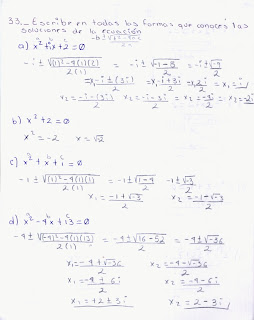 33._ Escribe en todas las formas que conoces las
soluciones de la ecuación
a) x²+ix+2=0
-i ± √(i)²-4(1)(2) / 2(1) = -i ± √-1-8 / 2 = -i ± √-9 / 2
x₂ = -i-(3i) / 2 x₂ = -i-3i / 2 x₂ = -4i / 2 = x₂ = -2i
b) x²+2=0
x² = -2 x = √2
c) x²+x+1=0
-1 ± √(1)²-4(1)(1) / 2(1) = -1 ± √1-4 / 2 = -1 ± √-3 / 2
x₁ = -1+√-3 / 2 x₂ = -1-√-3 / 2
d) x²-4x+13=0
-4 ± √(-4)²-4(1)(13) / 2(1) = -4 ± √16-52 / 2 = -4 ± √-36 / 2
x₁ = -4+√-36 / 2 x₂ = -4-√-36 / 2
x₁ = -4+6i / 2 x₂ = -4-6i / 2
x₁ = +2±3i x₂ = 2-3i